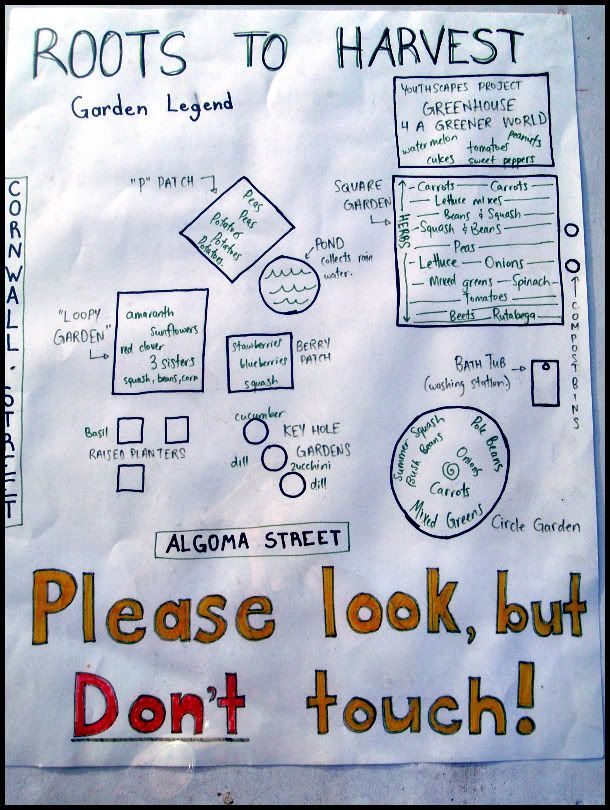 ROOTS TO HARVEST
Garden Legend
YOUTHSCAPES PROJECT
GREENHOUSE
4 A GREENER WORLD
watermelon tomatoes Peanuts
cukes sweet peppers
CORNWALL STREET
"P" PATCH
Peas
Peas
Potatoes
Potatoes
Potatoes
SQUARE
GARDEN
HERBS
Carrots Carrots
Lettuce mixes
Beans & Squash
Squash & Beans
Peas
Lettuce Onions
Mixed greens Spinach
Tomatoes
Beets Rutabega
COMPOST BINS
POND
collects rain
water.
"LOOPY
GARDEN"
amaranth
sunflowers
red clover
3 sisters
squash, beans, corn
stawberries
blueberries
squash
BERRY
PATCH
BATH TUB
(washing station)
Basil
RAISED PLANTERS
cucumber
KEY HOLE
GARDENS
dill
zucchini
dill
Summer Squash
Bush Beans
Pole Beans
Onions
Carrots
Mixed Greens
Circle Garden
ALGOMA STREET
Please look, but
Don't touch!